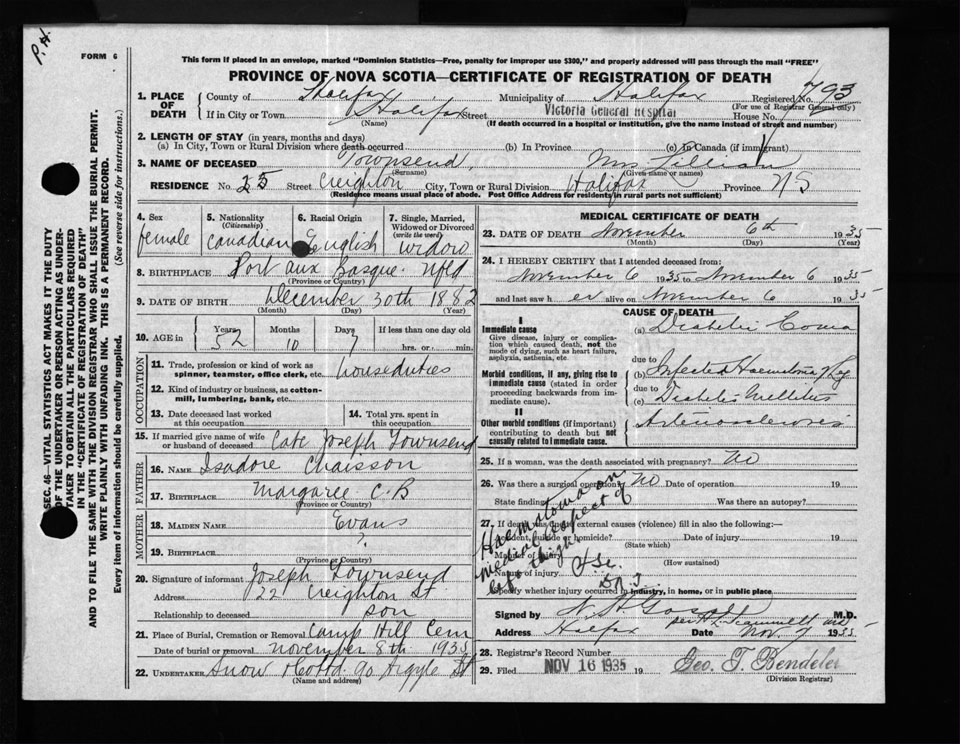 P.H.
FORM 6
This form if placed in an envelope, marked "Dominion Statistics—Free, penalty for improper use $300," and properly addressed will pass through the mail "FREE"
PROVINCE OF NOVA SCOTIA—CERTIFICATE OF REGISTRATION OF DEATH
SEC. 46—VITAL STATISTICS ACT MAKES IT THE DUTY
OF THE UNDERTAKER OR PERSON ACTING AS UNDER-
TAKER TO OBTAIN ALL THE PARTICULARS REQUIRED
IN THE "CERTIFICATE OF REGISTRATION OF DEATH"
AND TO FILE THE SAME WITH THE DIVISION REGISTRAR WHO SHALL ISSUE THE BURIAL PERMIT.
WRITE PLAINLY WITH UNFADING INK. THIS IS A PERMANENT RECORD.
Every item of information should be carefully supplied. (See reverse side for instructions.)
1. PLACE OF DEATH County of Halifax Municipality of Halifax Registered No. 793
(For use of Registrar General only)
If in City or Town Halifax Street Victoria General Hospital House No.
(Name) (If death occurred in a hospital or institution, give the name instead of street and number)
2. LENGTH OF STAY (in years, months and days)
(a) In City, Town or Rural Division where death occurred (b) In Province (c) In Canada (if immigrant)
3. NAME OF DECEASED Townsend, Mrs Lillian
(Surname) (Given name or names)
RESIDENCE No. 25 Street Creighton City, Town or Rural Division Halifax Province NS
(Residence means usual place of abode. Post Office Address for residents in rural parts not sufficient)
4. Sex female
5. Nationality (Citizenship) Canadian
6. Racial Origin English
7. Single, Married, Widowed or Divorced (write the word) widow
8. BIRTHPLACE Port aux Basque. Nfld
(Province or Country)
9. DATE OF BIRTH December 30th 1882
(Month) (Day) (Year)
10. AGE in Years 52 Months 10 Days 7 If less than one day old hrs. or min.
OCCUPATION
11. Trade, profession or kind of work as spinner, teamster, office clerk, etc. houseduties
12. Kind of industry or business, as cotton-mill, lumbering, bank, etc.
13. Date deceased last worked at this occupation
14. Total yrs. spent in this occupation
15. If married give name of wife or husband of deceased Late Joseph Townsend
FATHER
16. NAME Isadore Chaisson
17. BIRTHPLACE Margaree C.B
MOTHER
18. MAIDEN NAME Evans
19. BIRTHPLACE ?
(Province or Country)
20. Signature of informant Joseph Townsend
Address 22 Creighton St
Relationship to deceased son
21. Place of Burial, Cremation or Removal Camp Hill Cem
Date of burial or removal november 8th 1935
22. UNDERTAKER Snow &Co Ltd 90 Argyle St
(Name and address)
MEDICAL CERTIFICATE OF DEATH
23. DATE OF DEATH November 6th 1935
(Month) (Day) (Year)
24. I HEREBY CERTIFY that I attended deceased from:
November 6 1935 to November 6 1935
and last saw her alive on November 6 1935
CAUSE OF DEATH
I
Immediate cause
Give disease, injury or complication which caused death, not the mode of dying, such as heart failure, asphyxia, asthenia, etc.
(a) Diabetic Coma
due to
Morbid conditions, if any, giving rise to immediate cause (stated in order proceeding backwards from immediate cause).
(b) Infected Haematoma of leg
due to
(c) Diabetes Mellitus
II
Other morbid conditions (if important) contributing to death but not causally related to immediate cause.
Arteriosclerosis
25. If a woman, was the death associated with pregnancy? No
26. Was there a surgical operation? No Date of operation 19
State findings Was there an autopsy?
27. If death was due to external causes (violence) fill in also the following:—
Accident, suicide or homicide? Date of injury 19
(State which)
Manner of injury
(How sustained)
Nature of injury
Specify whether injury occurred in industry, in home, or in public place
Haematoma on
medial aspect of
left thigh
Signed by N. H. Gosse M.D.
per H. L. Scammell MD
Address Halifax Date Nov. 7 1935
28. Registrar's Record Number
29. Filed NOV 16 1935 19 Geo. T. Bendelier
(Division Registrar)